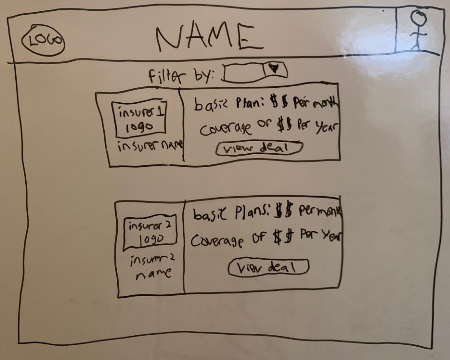 LOGO
NAME
filter by:
insurer 1
logo
insurer name
basic plan: $$ per month
coverage of $$ per year
view deal
insurer 2
logo
insurer 2
name
basic plans: $$ per month
coverage of $$ per year
view deal